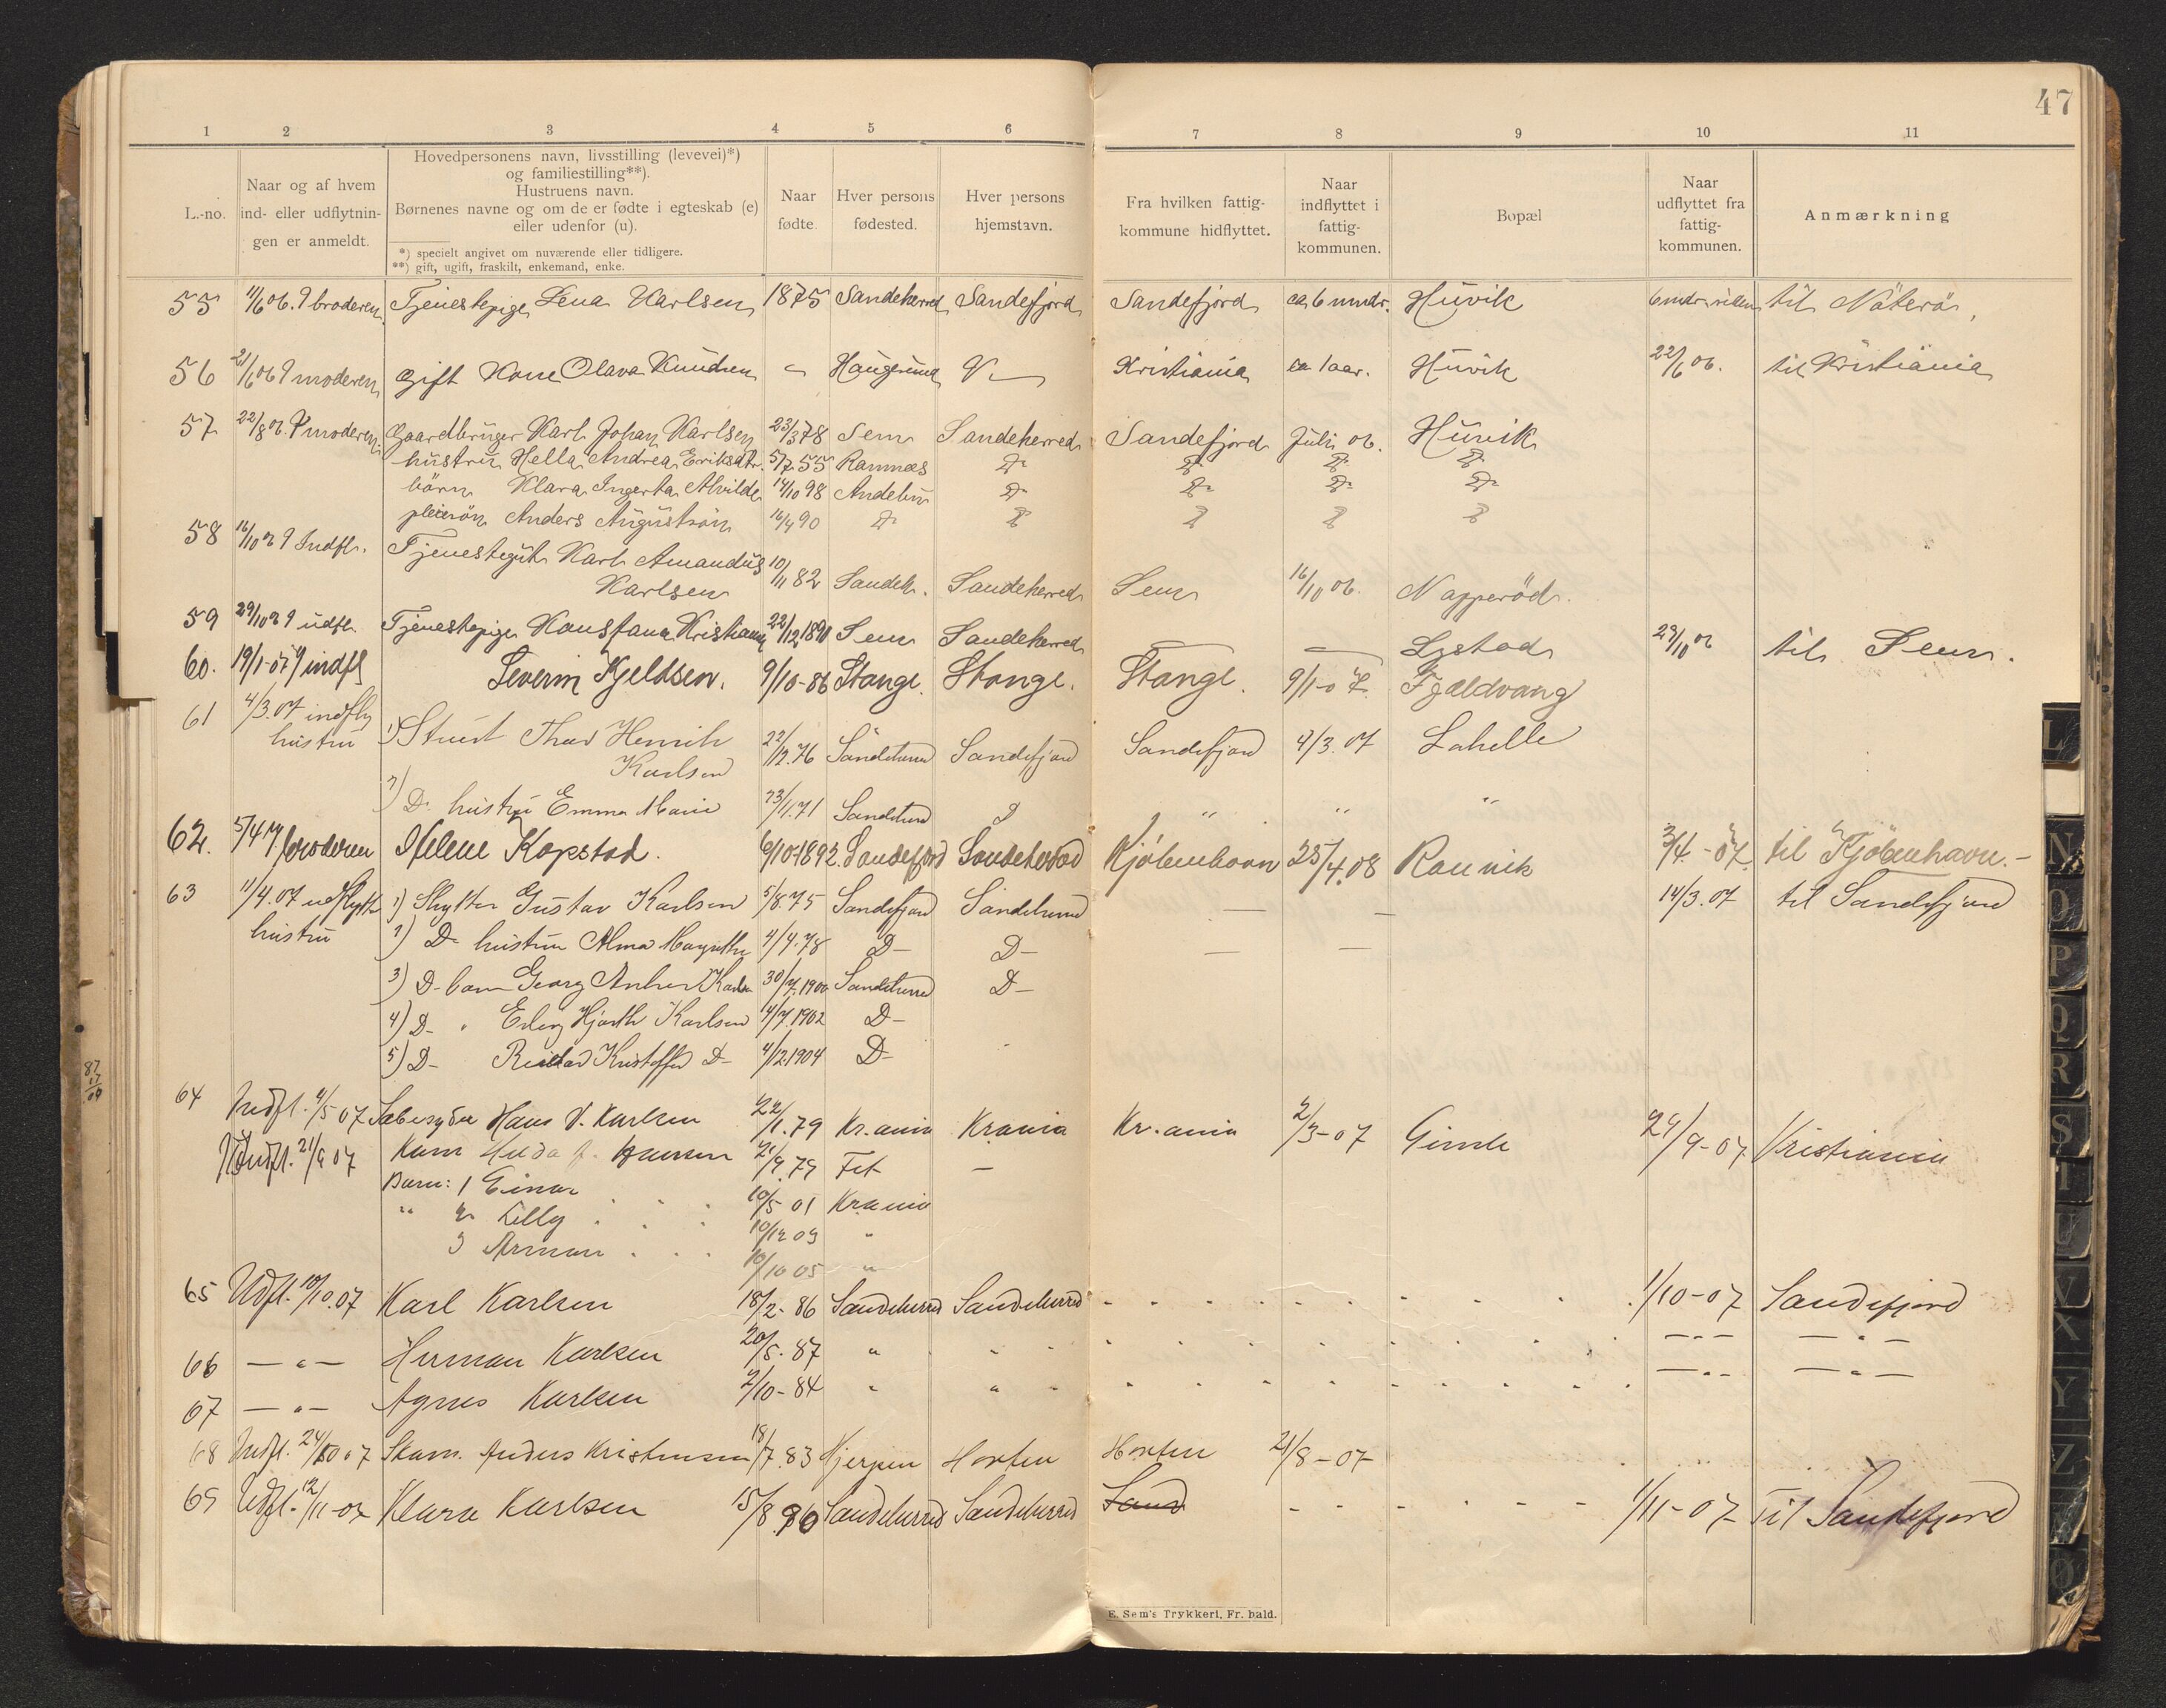 47
1 2 3 4 5 6 7 8 9 10 11
L.-no.
Naar og af hvem
ind- eller udflytnin-
gen er anmeldt.
Hovedpersonens navn, livsstilling (levevei)*)
og familiestilling**).
Hustruens navn.
Børnenes navne og om de er fødte i egteskab (e)
eller udenfor (u).
*) specielt angivet om nuværende eller tidligere.
**) gift, ugift, fraskilt, enkemand, enke.
Naar
fødte.
Hver persons
fødested.
Hver persons
hjemstavn.
Fra hvilken fattig-
kommune hidflyttet.
Naar
indflyttet i
fattig-
kommunen.
Bopæl
Naar
udflyttet fra
fattig-
kommunen.
Anmærkning
55 11/6 06. broderen Tjenestepige Lena Karlsen 1875 Sandeherred Sandefjord Sandefjord ca 6 mndr. Huvik 6 mdr. siden til Nøterø
56 21/6 06 moderen Gift Kone Olava Knudsen Haugesund Kristiania ca 1 aar. Huvik 22/6 06. til Kristiania
57 22/8 06. moderen Gaardbruger Karl Johan Karlsen 23/3 78 Sem Sandeherred Sandefjord Juli 06. Huvik
hustru Hella Andrea Eriksdtr. 5/7 55 Ramnæs Do Do Do Do
børn Klara Ingerta Alvilde 14/10 98 Andebu Do Do Do Do
pleiesøn Anders Augustsøn 16/4 90 Do Do Do Do Do
58 16/10 06 Indfl. Tjenestegut Karl Amandus 10/11 82 Sandeh. Sandeherred Sem 16/10 06. Napperød.
Karlsen
59 29/10 06 udfl. Tjenestepige Konstanse Kristiansen 22/12 1890 Sem Sandeherred — — Lystad 29/10 06 til Sem.
60. 19/1-07 indfl Severin Kjeldsen. 9/10-86 Stange. Stange. Stange. 9/1-07. Fjældvang
61 4/3.07 indfly 1) Stuert Thor Henrik 22/12.76 Sandeherred Sandefjord Sandefjord 4/3.07 Lahelle
hustru Karlsen
2) Do hustru Emma Marie 23/1.71 Sandeherred D " " "
62. 5/4 07 broderen Helene Kopstad. 6/10 1892. Sandefjord Sandeherred Kjøbenhavn 25/4.08 Rauvik 3/4.-07. til Kjøbenhavn.-
63 11/4.07 udflytt 1) Skytter Gustav Karlsen 5/8.75 Sandefjord Sandeherred — — 14/3.07 til Sandefjord
hustru 2) Do hustru Alma Margrethe 4/4.78 D- D- — —
3) D- barn Georg Anker Karlsen 30/7.1900 Sandeherred D-
4) D- " Erling Hjorth Karlsen 4/7.1902 D-
5) D- Reidar Kristoffer D- 4/12.1904 D-
64 Indfl. 4/5 07 Sæbesyder Hans V. Karlsen 22/1.79 Kr.ania Kr.ania Kr.ania 2/3-07 Gimle 24/9-07 Kristiania
Udfl. 21/9 07 Kone Hilda f. Hansen 21/9.79 Fet —
Barn: 1 Einar 10/5 01 Kr.ania
" 2 Lilly 10/12 03 "
3 Arman 10/10 05 "
65 Udfl. 10/10.07 Karl Karlsen 18/2-86 Sandeherred Sandeherred 1/10-07 Sandefjord
66 — " — Herman Karlsen 20/5.87 " " — " — — " —
67 — " — Agnes Karlsen 2/10-84 " " — " — — " —
68 Indfl. 24/10 07 Skom. Anders Kristensen 18/7.83 Gjerpen Horten Horten 21/8-07
69 Udfl. 12/11-07 Klara Karlsen 15/8.90 Sandeherred Sandeherred Sand 1/11-07 Til Sandefjord
87
17
09
E. Sem's Trykkeri, Fr. hald.
L
N
O
P
Q
R
S
T
U
V
X
Y
Z
Ø